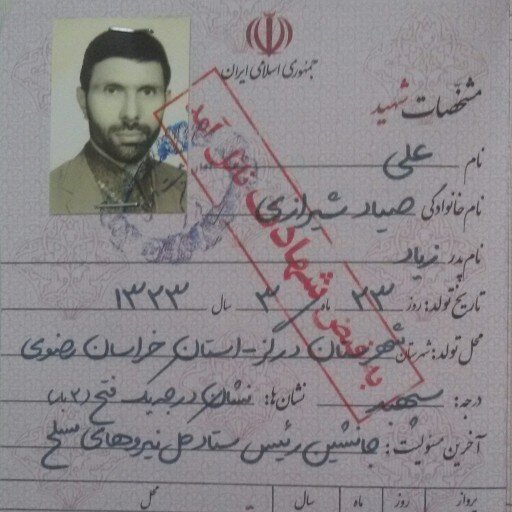 جمهوری اسلامی ایران
مشخصات شهید
نام علی
نام خانوادگی صیاد شیرازی
نام پدر زیاد
تاریخ تولد: روز ۲۳ ماه ۳ سال ۱۳۲۳
محل تولد: شهرستان شهرستان درگز - استان خراسان رضوی
درجه: سپهبد نشان ها: نشان درجه یک فتح (۲ بار)
آخرین مسئولیت: جانشین رئیس ستاد کل نیروهای مسلح
پرواز روز ماه سال محل
به فیض شهادت نائل آمد